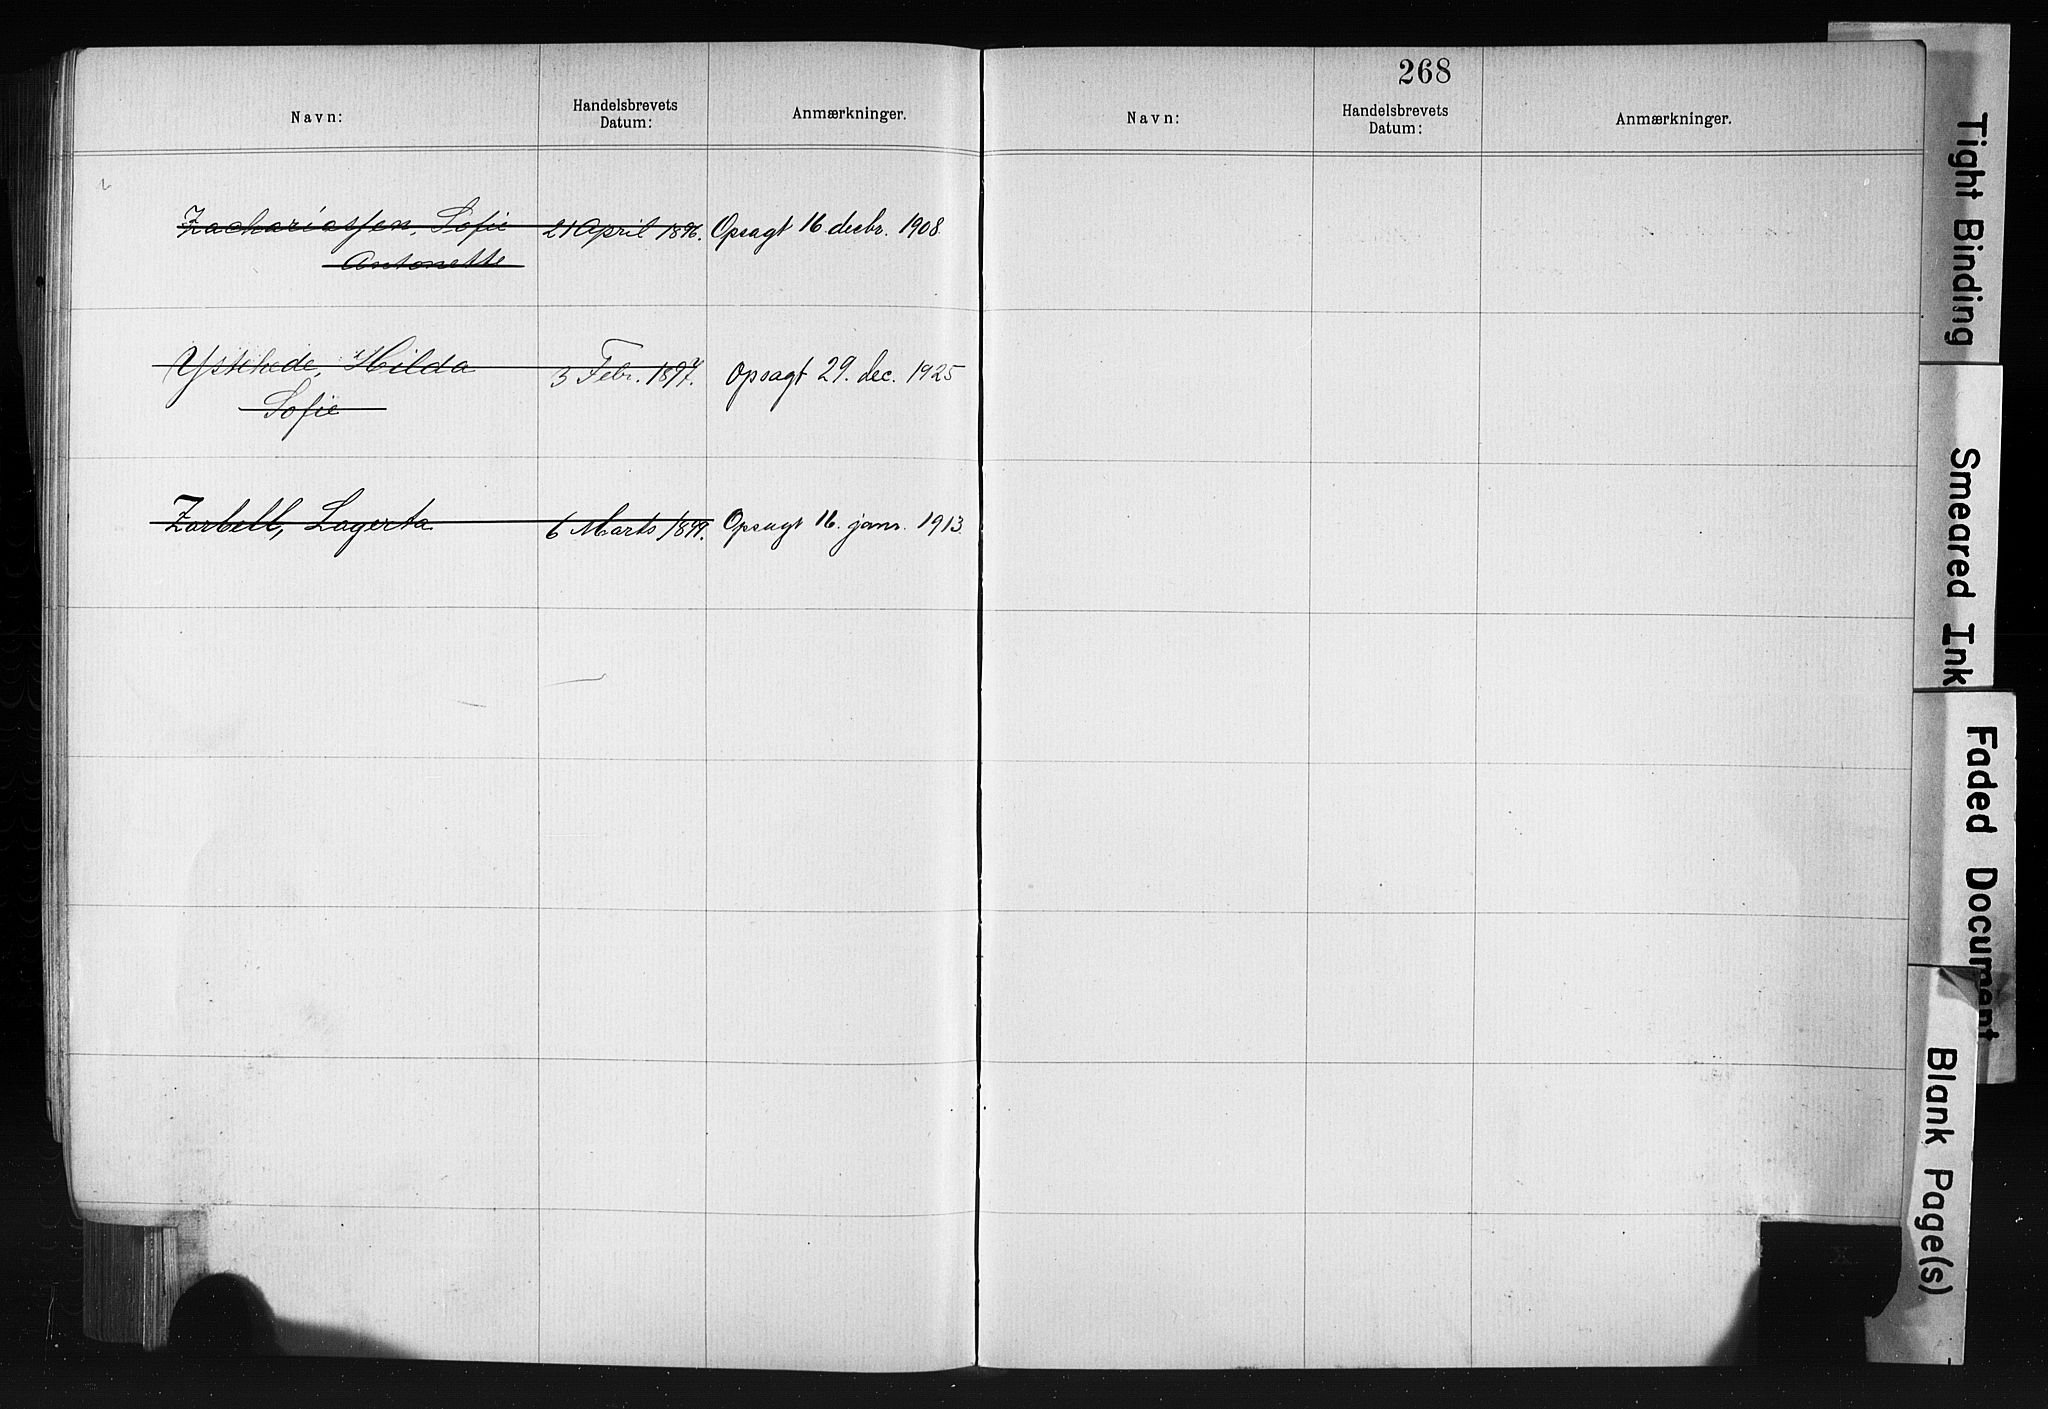 Navn:
Handelsbrevets
Datum:
Anmærkninger.
Zachariassen, Sofie 21 April 1896. Opsagt 16 decbr. 1908
Antonette
Ystehede, Hilda 3 Febr. 1897. Opsagt 29. dec. 1925
Sofie
Zarbell, Lagerta 6 Marts 1899. Opsagt 16. janr. 1913
268
Navn:
Handelsbrevets
Datum:
Anmærkninger.
Tight Binding
Smeared Ink
Faded Document
Blank Page(s)